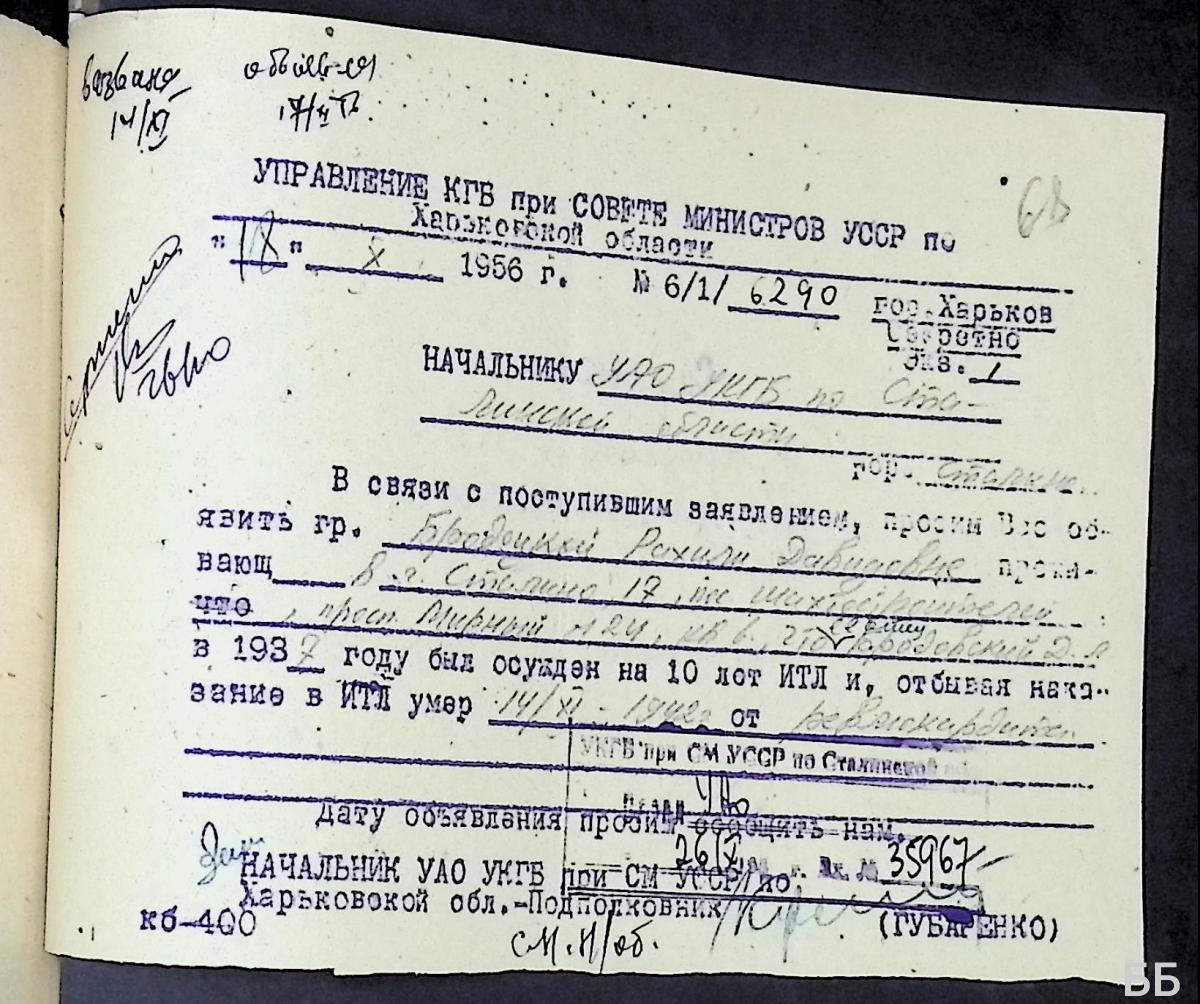 вызвана
14/XI
объявлен
17/XI
68
УПРАВЛЕНИЕ КГБ при СОВЕТЕ МИНИСТРОВ УССР по
Харьковской области
"18" X 1956 г. № 6/1/ 6290 гор. Харьков
Секретно
Экз. 1
НАЧАЛЬНИКУ УАО УКГБ по Ста-
линской области
гор. Сталино
В связи с поступившим заявлением, просим Вас об-
явить гр. Бродецкой Рахили Давидовне прожи-
вающ в г. Сталино, 17, пос шахтостроителей
что, просп. Мирный № 24, кв 6., что
в 1937 году был осужден на 10 лет ИТЛ и, отбывая нака-
зание в ИТЛ умер 14/XI - 1942г от
УКГБ при СМ УССР по Сталинской
УАО
Дату объявления просим сообщить нам.
26 X г. Вх. № 35967
НАЧАЛЬНИК УАО УКГБ при СМ УССР по
Харьковской обл.-Подполковник
(ГУБАРЕНКО)
кб-400
ББ